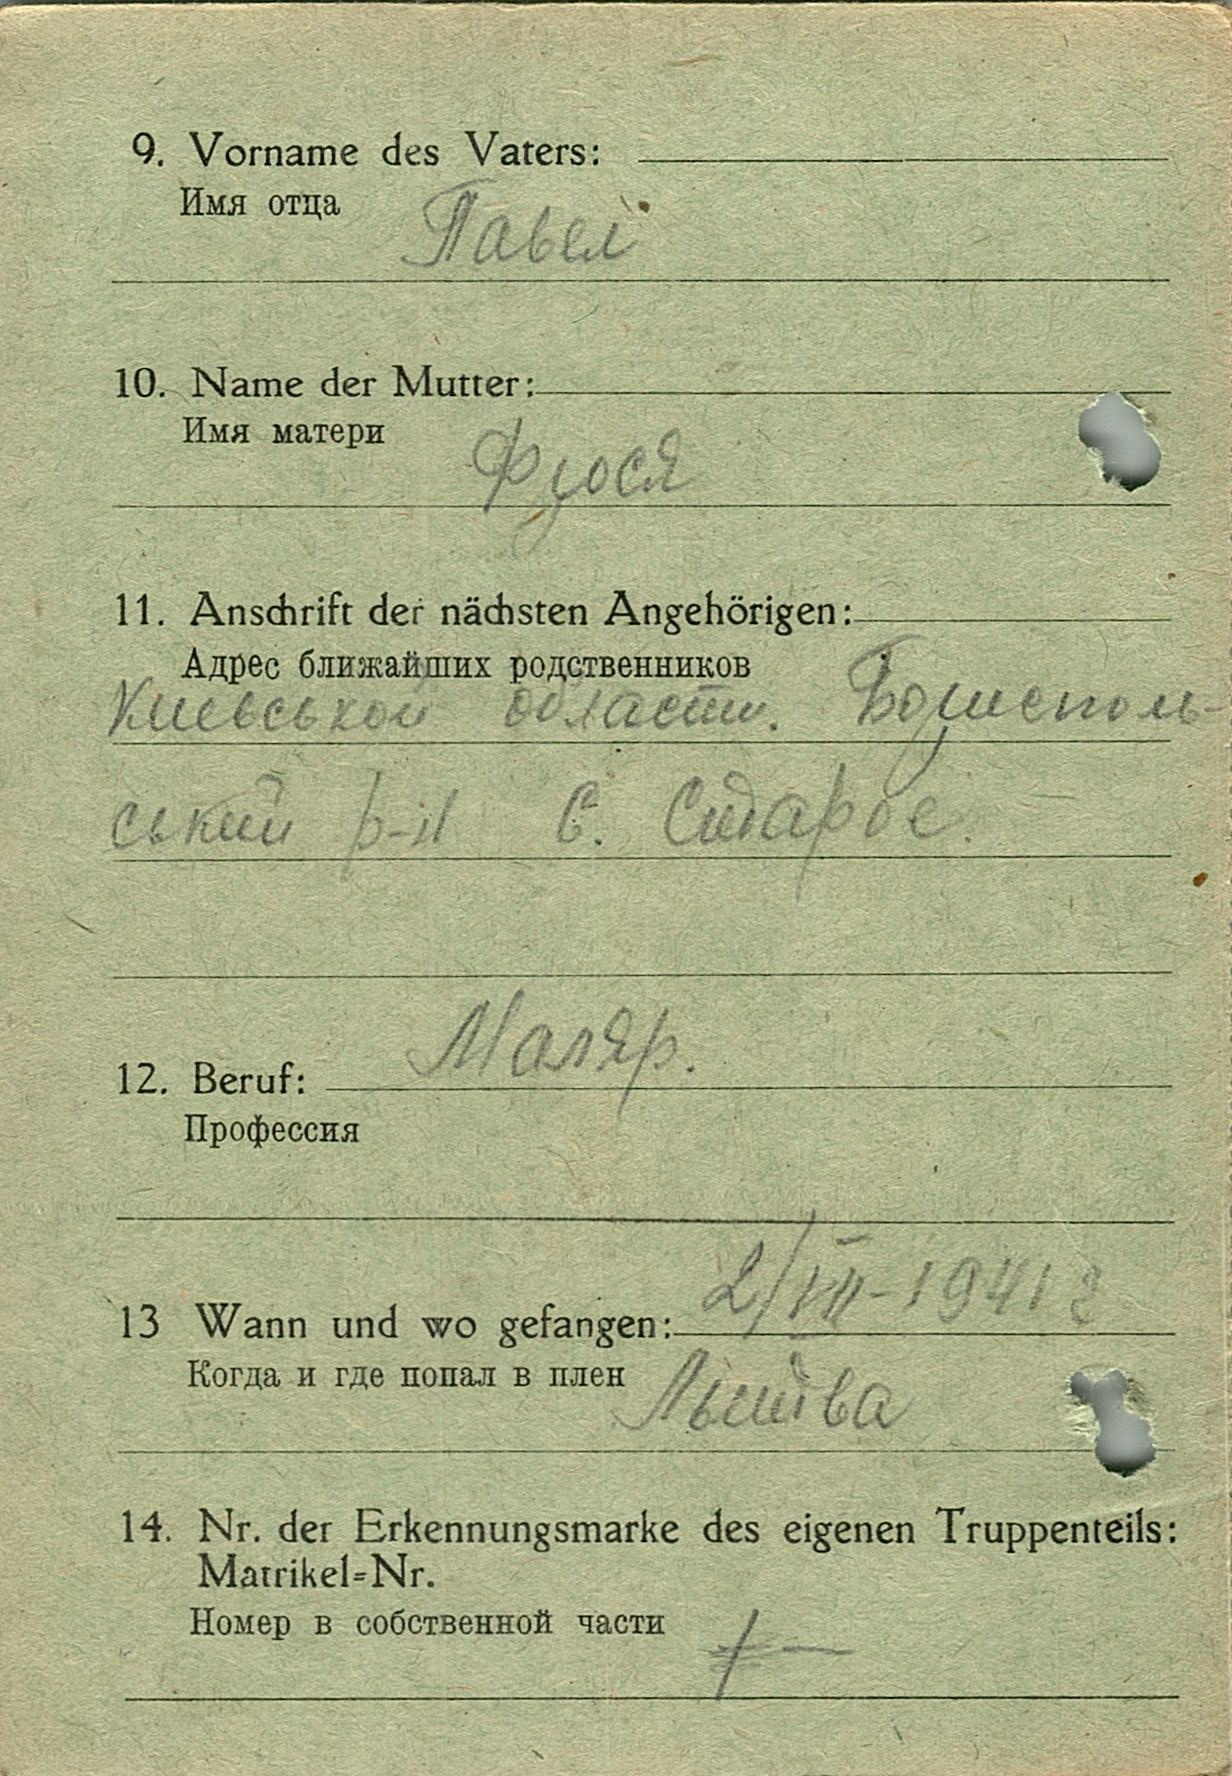 9. Vorname des Vaters:
Имя отца
Павел
10. Name der Mutter:
Имя матери
Фрося
11. Anschrift der nächsten Angehörigen:
Адрес ближайших родственников
Киевськой области. Борисполь-
ський р-н С. Старое.
Маляр.
12. Beruf:
Профессия
2/VII-1941 г
13 Wann und wo gefangen:
Когда и где попал в плен
14. Nr. der Erkennungsmarke des eigenen Truppenteils:
Matrikel=Nr.
Номер в собственной части